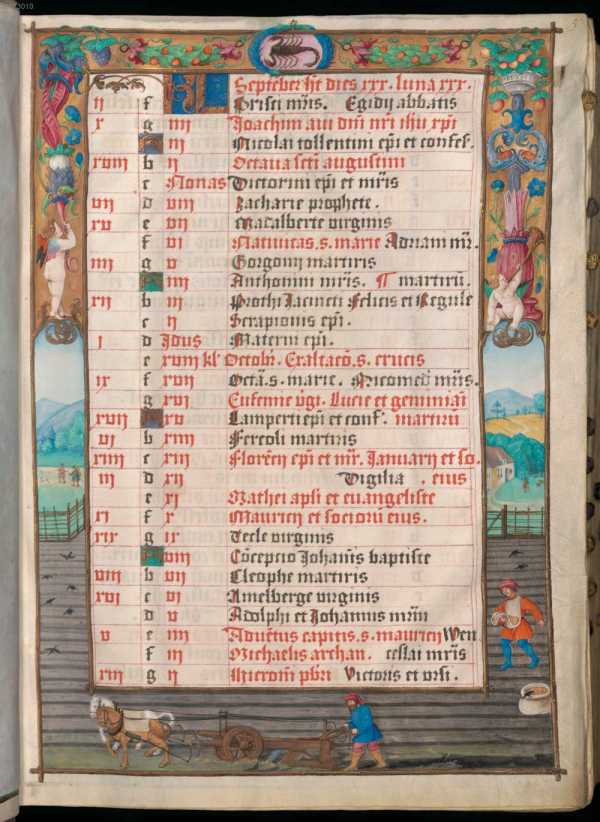 KL Septēber hꝫ dies xxx. luna xxx.
ii f Prisci m̄ris. Egidij abbatis
x g iiii Joachim aui dn̄i nr̄i ihū xp̄i
iii Nicolai tollentini ep̄i et confes.
xviii b ii Octaua sct̄i augustini
c Nonas Victorini ep̄i et m̄ris
vii d viii Zacharie prophete.
xv e vii Madalberte virginis
f vi Natiuitas. s. marie Adriani mr̄.
iiii g v Gorgonij martiris
iiii Anthonini m̄ris. ¶ martirū.
xii b iii Prothi Jacincti Felicis et Regule
c ii Serapionis ep̄i.
i d Jdus Materni ep̄i.
e xviii kl' Octobr̄. Exaltac̄o. s. crucis
ix f xvii Octā. s. marie. Nicomed m̄ris.
g xvi Eufemie v̄gi. Lucie et geminiāi
xvii xv Lamperti ep̄i et conf. martirū
vi b xiiii Fereoli martiris
xiiii c xiii Florēcij ep̄i et mr̄. Januarij et so.
iii d xii Vigilia . eius
e xi Mathei apl̄i et euangeliste
xi f x Mauricij et sociorū eius.
xix g ix Tecle virginis
viii Cōcepcio Johan̄is baptiste
viii b vii Cleophe martiris
xvi c vi Amelberge virginis
d v Adolphi et Johannis mr̄m
v e iiii Aduētus capitis. s. mauricij Wen
f iii Michaelis archan. ceslai m̄ris
xiii g ii Hieronī pbr̄i Victoris et vrsi.